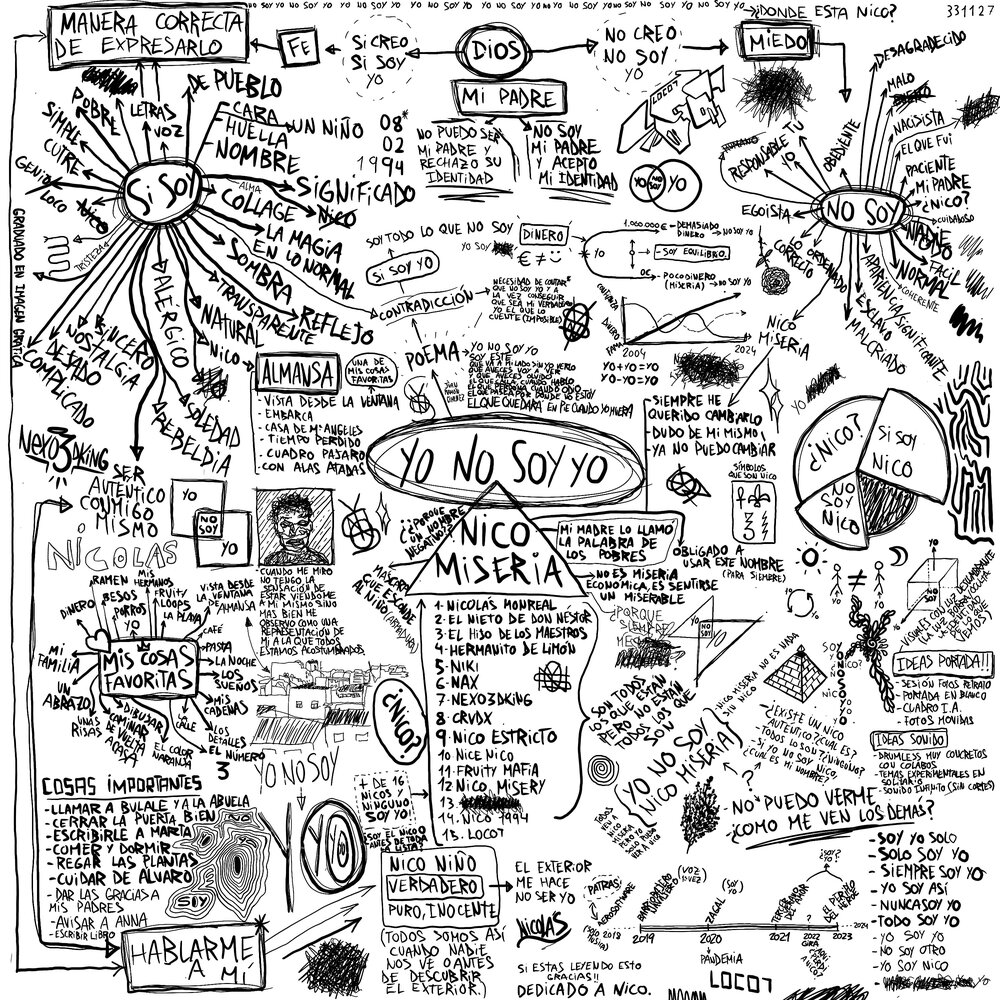 NO SOY YO NO SOY YO NO SOY YO
¿DONDE ESTA NICO?
331127
MANERA CORRECTA
DE EXPRESARLO
FE
SI CREO
SI SOY
YO
DIOS
NO CREO
NO SOY
YO
MIEDO
MI PADRE
NO PUEDO SER
MI PADRE Y
RECHAZO SU
IDENTIDAD
NO SOY
MI PADRE
Y ACEPTO
MI IDENTIDAD
LOCO7
YO
NO SOY
YO
SI SOY
DE PUEBLO
CARA
HUELLA
NOMBRE
UN NIÑO
08*
02
1994
VOZ
LETRAS
POBRE
SIMPLE
CUTRE
GENIO
LOCO
NICO
TRISTEZA
GRADUADO EN IMAGEN CARATICA
SIGNIFICADO
ALMA
COLLAGE
NICO
LA MAGIA
EN LO NORMAL
SOMBRA
REFLEJO
TRANSPARENTE
NATURAL
NICO
ALÉRGICO
SOLEDAD
REBELDIA
SINCERO
NOSTALGIA
DESVADO
COMPLICADO
NEXO3DKING
SER
AUTENTICO
CONMIGO
MISMO
NO SOY
DESAGRADECIDO
MALO
NACIDISTA
EL QUE FUI
PACIENTE
MI PADRE
¿NICO?
CUIDADOSO
NADIE
NADA
FACIL
NORMAL
COHERENTE
APARIENCIA/SIGNIFICANTE
ESCLAVO
MALCRIADO
OBEDIENTE
RESPONSABLE
TU
YO
EGOISTA
LO ORDENADO
LO CORRECTO
NICO
MISERIA
YO
SOY TODO LO QUE NO SOY
YO SOY
SI SOY YO
CONTRADICCIÓN
NECESIDAD DE CONTAR
QUE NO SOY YO Y A
LA VEZ CONSEGUIR
QUE SEA MI VERDADERO
YO EL QUE LO
CUENTE (IMPOSIBLE)
DINERO
€ ≠
YO
1.000.000€ - DEMASIADO
DINERO → NO SOY YO
- SOY EQUILIBRO.
0€ - POCO DINERO
(MISERIA) → NO SOY YO
DINERO
FAMA
2004
2024
YO+YO=YO
YO-YO=YO
ALMANSA
UNA DE
MIS COSAS
FAVORITAS
- VISTA DESDE LA VENTANA
- EMBARCA
- CASA DE Mª ANGELES
- TIEMPO PERDIDO
- CUADRO PAJARO
CON ALAS ATADAS
POEMA
JUAN
RAMON
JIMENEZ
YO NO SOY YO
SOY ESTE
QUE VA A MI LADO SIN YO VERLO
QUE AVECES VOY A VER
Y QUE AVECES OLVIDO
EL QUE CALLA CUANDO HABLO
EL QUE PERDONA CUANDO ODIO
EL QUE PASEA POR DONDE NO ESTOY
EL QUE QUEDARA EN PIE CUANDO YO MUERA
- SIEMPRE HE
QUERIDO CAMBIARLO
- DUDO DE MI MISMO
- YA NO PUEDO CAMBIAR
SÍMBOLOS
QUE SON NICO
YO NO SOY YO
¿NICO?
SI SOY
NICO
NO
SOY
NICO
YO
NO
SOY
YO
NICOLAS
¿PORQUE
UN NOMBRE
NEGATIVO?
NICO
MISERIA
MI MADRE LO LLAMO
LA PALABRA DE
LOS POBRES
OBLIGADO A
USAR ESTE NOMBRE
(PARA SIEMPRE)
→ NO ES MISERIA
ECONOMICA, ES SENTIRSE
UN MISERABLE
MASCARA
QUE ESCONDE
AL NIÑO
- CUANDO ME MIRO
NO TENGO LA
SENSACIÓN DE
ESTAR VIENDOME
A MI MISMO SINO
MAS BIEN ME
OBSERVO COMO UNA
REPRESENTACIÓN DE
MI A LA QUE TODOS
ESTAMOS ACOSTUMBRADOS
1. NICOLÁS MONREAL
2. EL NIETO DE DON NÉSTOR
3. EL HIJO DE LOS MAESTROS
4. HERMANITO DE LIMÓN
5. NIKI
6. NAX
7. NEXO3DKING
8. CRVDX
9. NICO ESTRICTO
10 NICE NICO
11. FRUITY MAFIA
12 NICO MISERY
13.
14. NICO 1994
15. LOCO7
¿NICO?
¿PORQUE
SIEMPRE
NO
SOY
YO
SON TODOS
LOS QUE ESTÁN
PERO NO ESTÁN
TODOS LOS QUE
SON
(YO NO SOY
NICO MISERIA)
NICO MISERIA NO ES NADA
SIN NICO
- ¿EXISTE UN NICO
AUTENTICO? ¿CUAL ES?
- TODOS LO SON? ¿NINGUNO?
- SI YO NO SOY NICO,
¿CUAL ES MI NOMBRE?
SOY
¿NICO?
NICO
YOYOYO
YO
¿?
- NO PUEDO VERME
- ¿COMO ME VEN LOS DEMAS?
IDEAS PORTADA!!
- SESIÓN FOTOS RETRATO
- PORTADA EN BLANCO
- CUADRO I.A.
- FOTOS MOVIDAS
IDEAS SONIDO
- DRUMLESS MUY CONCRETOS
CON COLABOS
- TEMAS EXPERIMENTALES EN
SOLITARIO
- SONIDO INFINITO (SIN CORTES)
MIS COSAS
FAVORITAS
DINERO
RAMEN
BESOS
PORROS
YO
MIS
HERMANOS
FRUITY
LOOPS
LA PLAYA
VISTA DESDE
LA VENTANA
DE ALMANSA
CAFÉ
PASTA
LA NOCHE
LOS
SUEÑOS
MIS
CADENAS
LOS
DETALLES
EL NÚMERO
3
CALLE
EL COLOR
NARANJA
DIBUJAR
CAMINAR
DE VUELTA
A CASA
UNAS
RISAS
UN
ABRAZO
MI
FAMILIA
COSAS IMPORTANTES
- LLAMAR A BULALE Y A LA ABUELA
- CERRAR LA PUERTA BIEN
- ESCRIBIRLE A MARTA
- COMER Y DORMIR
- REGAR LAS PLANTAS
- CUIDAR DE ALVARO
- DAR LAS GRACIAS A
MIS PADRES
- AVISAR A ANNA
- ESCRIBIR LIBRO
NO
SOY
HABLARME
A MI
YO NO SOY
YO
YO
YO
+ DE 16
NICOS Y
NINGUNO
SOY YO
SOY EL NICO
ANTES DE TODA
LA LISTA
NICO NIÑO
VERDADERO
PURO, INOCENTE
(TODOS SOMOS ASÍ
CUANDO NADIE
NOS VE O ANTES
DE DESCUBRIR
EL EXTERIOR.)
EL EXTERIOR
ME HACE
NO SER YO
NICOLÁS
SI ESTAS LEYENDO ESTO
GRACIAS!!
DEDICADO A NICO.
PATRAS
2019
2020
2021
2022
2023
2024
(VOZ)
ZAGAL
(SOY YO)
¿SOY YO?
PANDEMIA
GIRA
EL PERRITO
DEL HEROE
LOCO7
- SOY YO SOLO
- SOLO SOY YO
- SIEMPRE SOY YO
- YO SOY ASÍ
- NUNCA SOY YO
- TODO SOY YO
- YO SOY YO
- NO SOY OTRO
- YO SOY NICO
YO